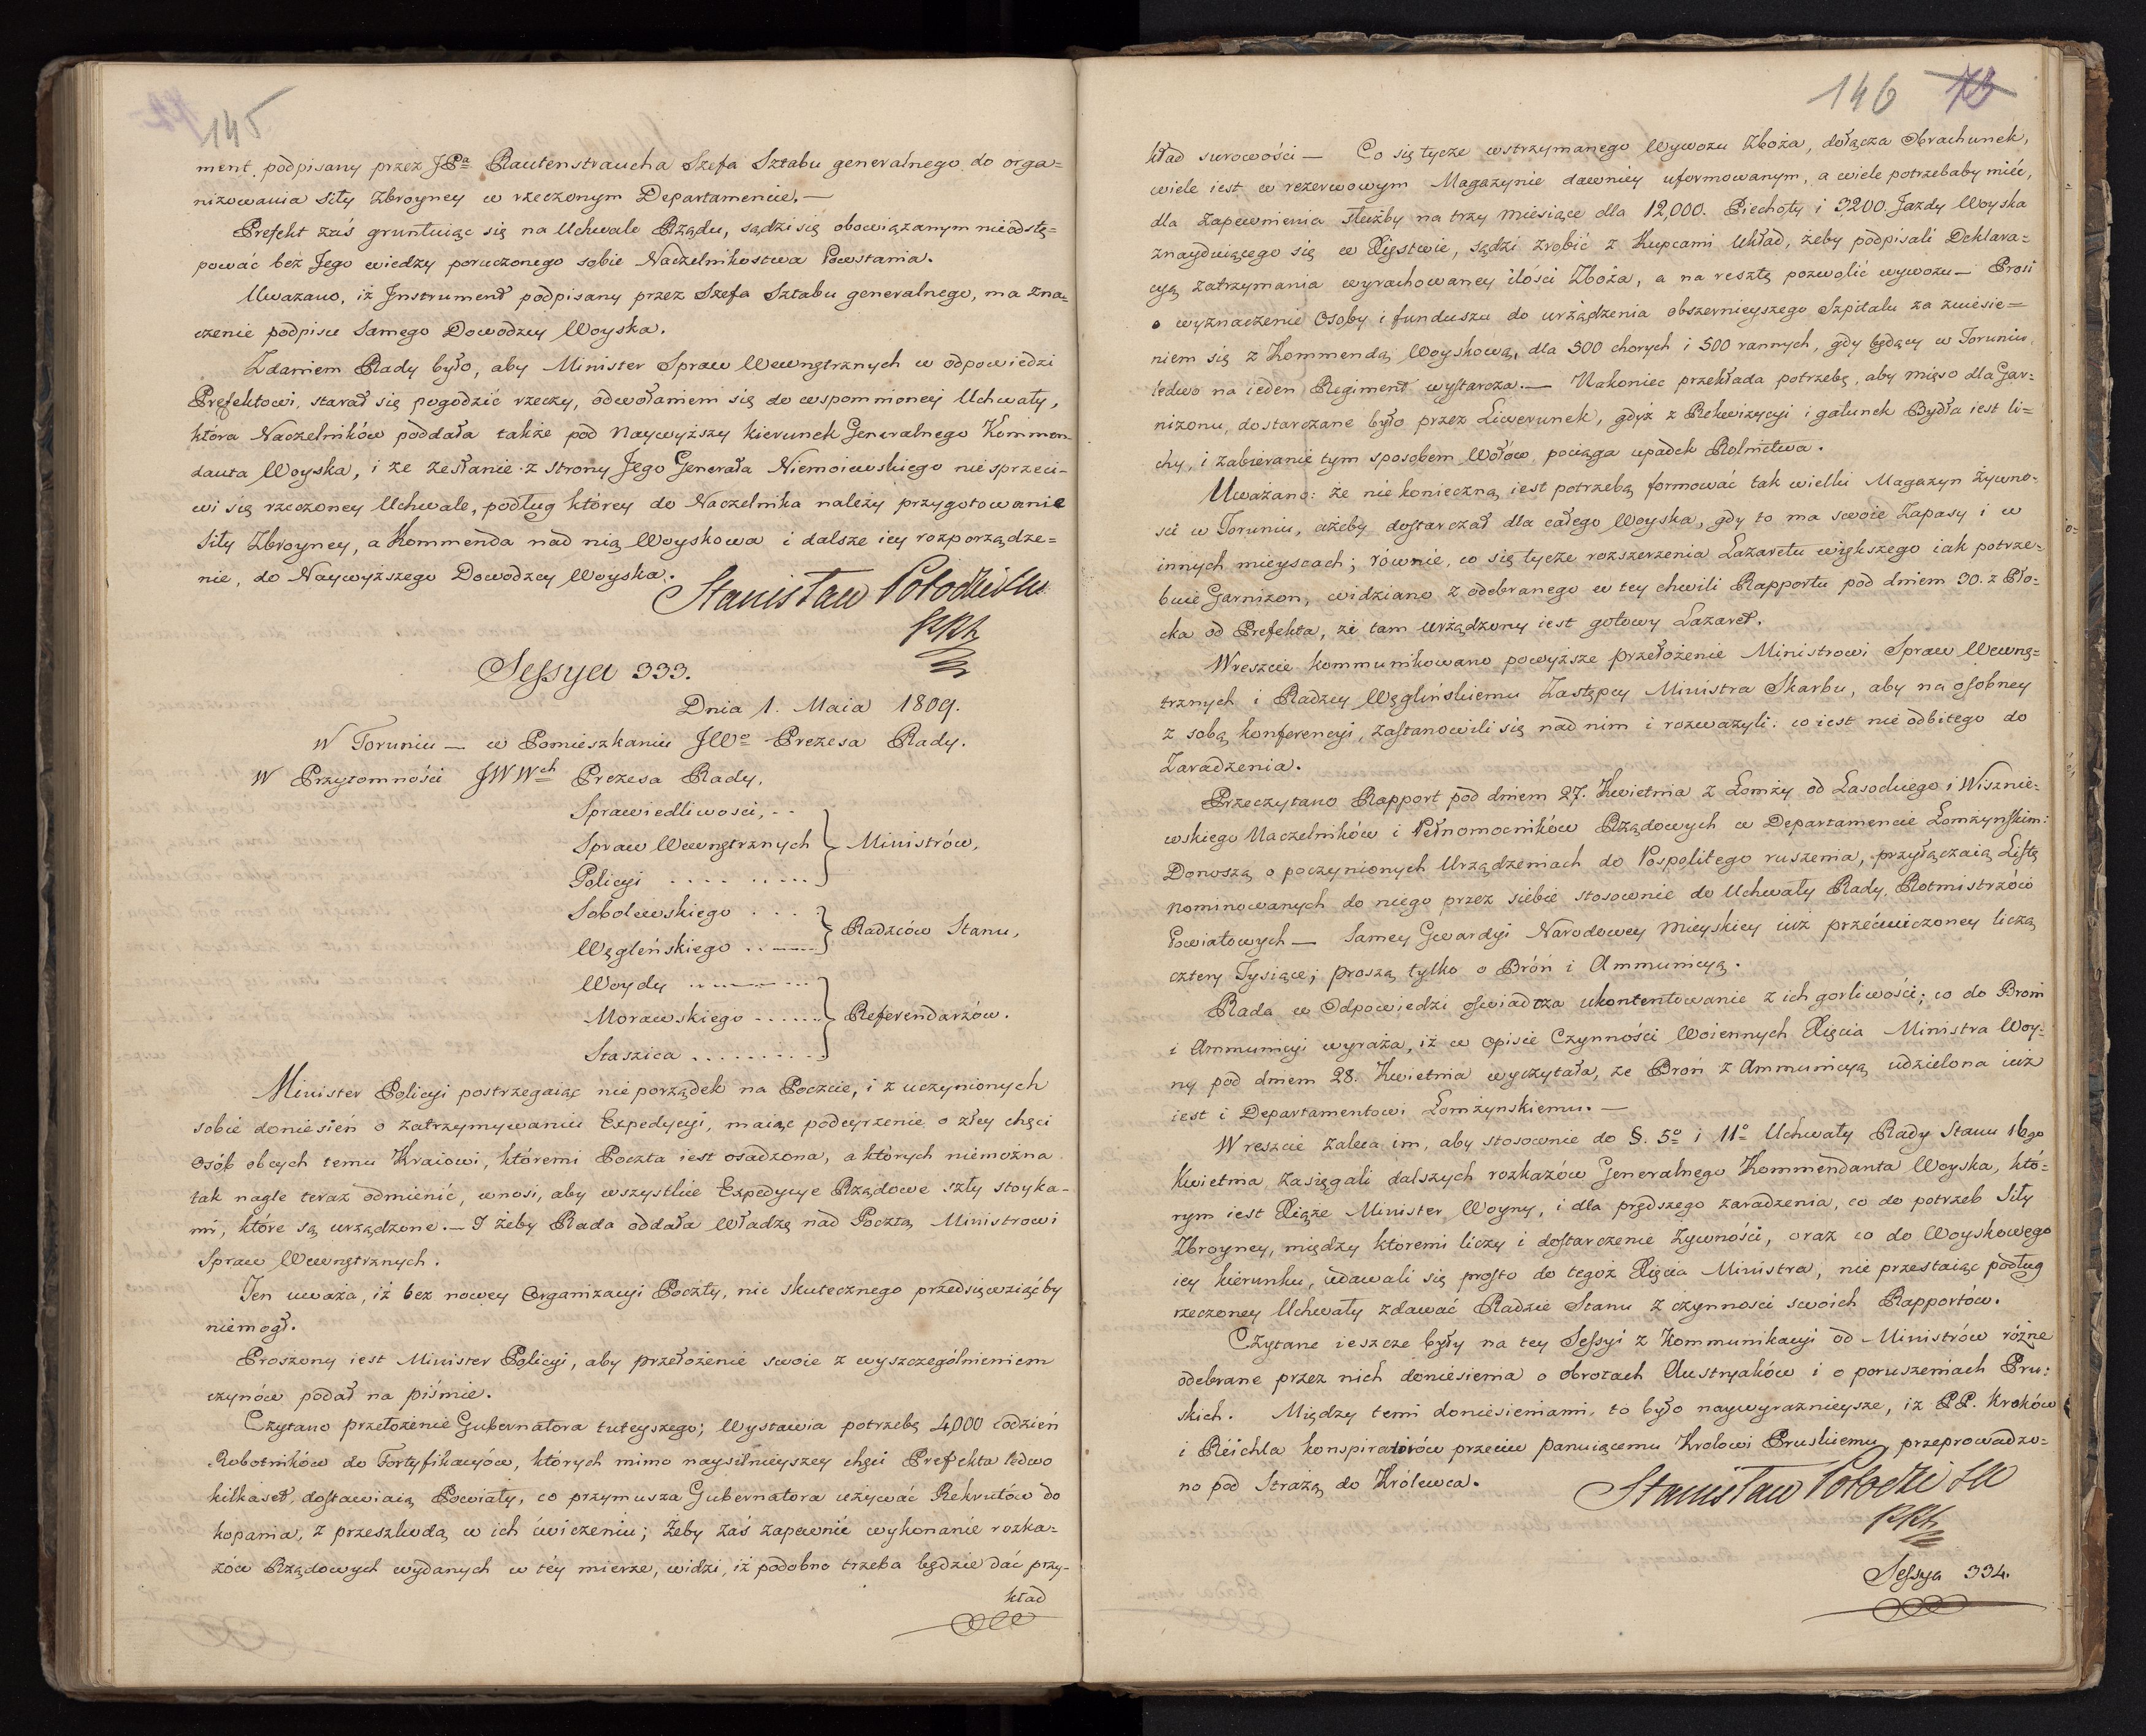 145
ment podpisany przez JPa Rautenstraucha Szefa Sztabu generalnego do orga=
nizowania siły zbroyney w rzeczonym Departamencie. —
Prefekt zaś gruntuiąc się na Uchwale Rządu, sądzi się obowiązanym nieodstę=
pować bez Jego wiedzy poruczonego sobie Naczelnikostwa Powstania.
Uważano, iż Jnstrument podpisany przez Szefa Sztabu generalnego, ma zna=
czenie podpisu samego Dowodzcy Woyska.
Zdaniem Rady było, aby Minister Spraw Wewnętrznych w odpowiedzi
Prefektowi, starał się pogodzić rzeczy, odwołaniem się do wspomnioney Uchwały,
która Naczelników poddała także pod Naywyższy kierunek Generalnego Kommen=
danta Woyska, i że zesłanie z strony Jego Generała Niemoiewskiego nie sprzeci=
wi się rzeczoney Uchwale, podług którey do Naczelnika należy przygotowanie
Siły Zbroyney, a Kommenda nad nią Woyskowa i dalsze iey rozporządze=
nie, do Naywyższego Dowodzcy Woyska.
Stanisław Potocki
Sessya 333.
Dnia 1. Maia 1809.
W Toruniu — w Pomieszkaniu JWo Prezesa Rady.
W Przytomności JWWch Prezesa Rady,
Sprawiedliwości, . .
Spraw Wewnętrznych } Ministrów,
Policyi . . . . . . . . .
Sobolewskiego . . . } Radzców Stanu,
Węgleńskiego . . . . .
Woydy . . . . . . . .
Morawskiego . . . . . . } Referendarzów.
Staszica . . . . . . . . . .
Minister Policyi postrzegaiąc nieporządek na Poczcie, i z uczynionych
sobie doniesień o zatrzymywaniu Expedycyi, maiąc podeyrzenie o złey chęci
osób obcych temu Kraiowi, któremi Poczta iest osadzona, a których niemożna
tak nagle teraz odmienić, wnosi, aby wszystkie Expedycye Rządowe szły stoyka=
mi, które są urządzone. — I żeby Rada oddała Władzę nad Pocztą Ministrowi
Spraw Wewnętrznych.
Ten uważa, iż bez nowey Organizacyi Poczty, nic skutecznego przedsięwziąćby
niemógł.
Proszony iest Minister Policyi, aby przełożenie swoie z wyszczególnieniem
czynów podał na piśmie.
Czytano przełożenie Gubernatora tuteyszego; Wystawia potrzebę 4,000 codzień
Robotników do Fortyfikacyów, których mimo naysilnieyszey chęci Prefekta ledwo
kilkaset, dostawiaią Powiaty, co przymusza Gubernatora używać Rekrutów do
kopania, z przeszkodą w ich ćwiczeniu; żeby zaś zapewnić wykonanie rozka=
zów Rządowych wydanych w téy mierze, widzi, iż podobno trzeba będzie dać przy=
kład
146
kład surowości — Co się tycze wstrzymanego Wywozu Zboża, dołącza Obrachunek,
wiele iest w rezerwowym Magazynie dawniey uformowanym, a wiele potrzebaby mieć,
dla zapewnienia służby na trzy miesiące dla 12,000. Piechoty i 3,200. Jazdy Woyska
znayduiącego się w Xięstwie, sądzi zrobić z Kupcami Układ, żeby podpisali Deklara=
cyą zatrzymania wyrachowaney ilości Zboża, a na resztę pozwolić wywozu — Prosi
o wyznaczenie Osoby i funduszu do urządzenia obszernieyszego Szpitalu za zniesie=
niem się z Kommendą Woyskową, dla 500 chorych i 500 rannych, gdy będący w Toruniu,
ledwo na ieden Regiment wystarcza. — Nakoniec przekłada potrzebę, aby mięso dla Gar=
nizonu, dostarczane było przez Liwerunek, gdyż z Rekwizycyi i gatunek Bydła iest li=
chy, i zabieranie tym sposobem Wołów pociąga upadek Rolnictwa.
Uważano: że nie konieczną iest potrzebą formować tak wielki Magazyn Żywno=
ści w Toruniu, ażeby dostarczał dla całego Woyska, gdy to ma swoie Zapasy i w
innych mieyscach; równie, co się tycze rozszerzenia Lazaretu większego iak potrze=
buie Garnizon, widziano z odebranego w tey chwili Rapportu pod dniem 30. z Pło=
cka od Prefekta, że tam urządzony iest gotowy Lazaret.
Wreszcie kommunikowano powyższe przełożenie Ministrowi Spraw Wewnę=
trznych i Radzcy Węglińskiemu Zastępcy Ministra Skarbu, aby na osobney
z sobą konferencyi, zastanowili się nad nim i rozważyli: co iest nieodbitego do
Zaradzenia.
Przeczytano Rapport pod dniem 27. Kwietnia z Łomży od Lasockiego i Wisznie=
wskiego Naczelników i Pełnomocników Rządowych w Departamencie Łomżyńskim:
Donoszą o poczynionych Urządzeniach do Pospolitego ruszenia, przyłączaią Listę
nominowanych do niego przez siebie stosownie do Uchwały Rady, Rotmistrzów
Powiatowych — Samey Gwardyi Narodowey Mieyskiey iuż przećwiczoney liczą
cztery Tysiące; proszą tylko o Broń i Ammunicyą.
Rada w Odpowiedzi oświadcza ukontentowanie z ich gorliwości; co do Broni
i Ammunicyi wyraża, iż w opisie Czynności Woiennych Xięcia Ministra Woy=
ny pod dniem 28. Kwietnia wyczytała, że Broń z Ammunicyą udzielona iuż
iest i Departamentowi Łomżynskiemu. —
Wreszcie zaleca im, aby stosownie do §. 5o i 11o Uchwały Rady Stanu 16go
Kwietnia zasięgali dalszych rozkazów Generalnego Kommendanta Woyska, któ=
rym iest Xiąże Minister Woyny, i dla prędszego zaradzenia, co do potrzeb Siły
Zbroyney, między któremi liczy i dostarczenie żywności, oraz co do Woyskowego
iey kierunku, udawali się prosto do tegoż Xięcia Ministra, nie przestaiąc podług
rzeczoney Uchwały zdawać Radzie Stanu z czynności swoich Rapportów.
Czytane ieszcze były na tey Sessyi z Kommunikacyi od Ministrów różne
odebrane przez nich doniesienia o obrotach Austryaków i o poruszeniach Pru=
skich. Między temi doniesieniami, to było naywyraźnieysze, iż PP. Kroków
i Reichla konspiratorów przeciw panuiącemu Królowi Pruskiemu przeprowadzo=
no pod Strażą do Królewca.
Stanisław Potocki
Sessya 334.